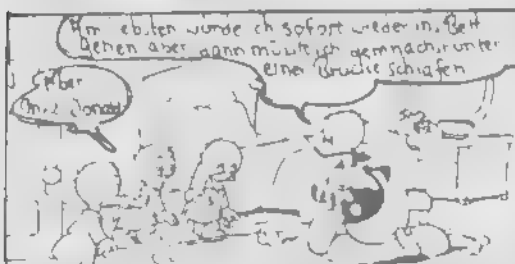 Am ebsten wurde ch sofort wieder in. Bett
gehen aber dann müßte ich demnach unter
einer Brücke schlafen
Aber
Donald